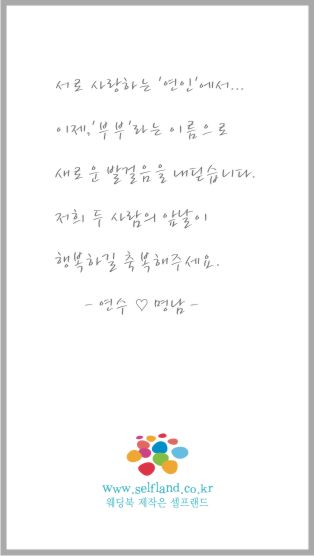 서로 사랑하는 '연인'에서...
이제,'부부'라는 이름으로
새로운 발걸음을 내딛습니다.
저희 두 사람의 앞날이
행복하길 축복해주세요.
- 연수 ♡ 명남 -
www.selfland.co.kr
웨딩북 제작은 셀프랜드